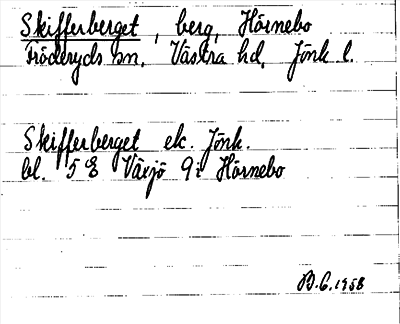 Skifferberget, berg, Hörnebo
Fröderyds sn. Västra hd. Jönk l.
Skifferberget ek. Jönk.
bl. 5 E Växjö 9i Hörnebo
B.C. 1958